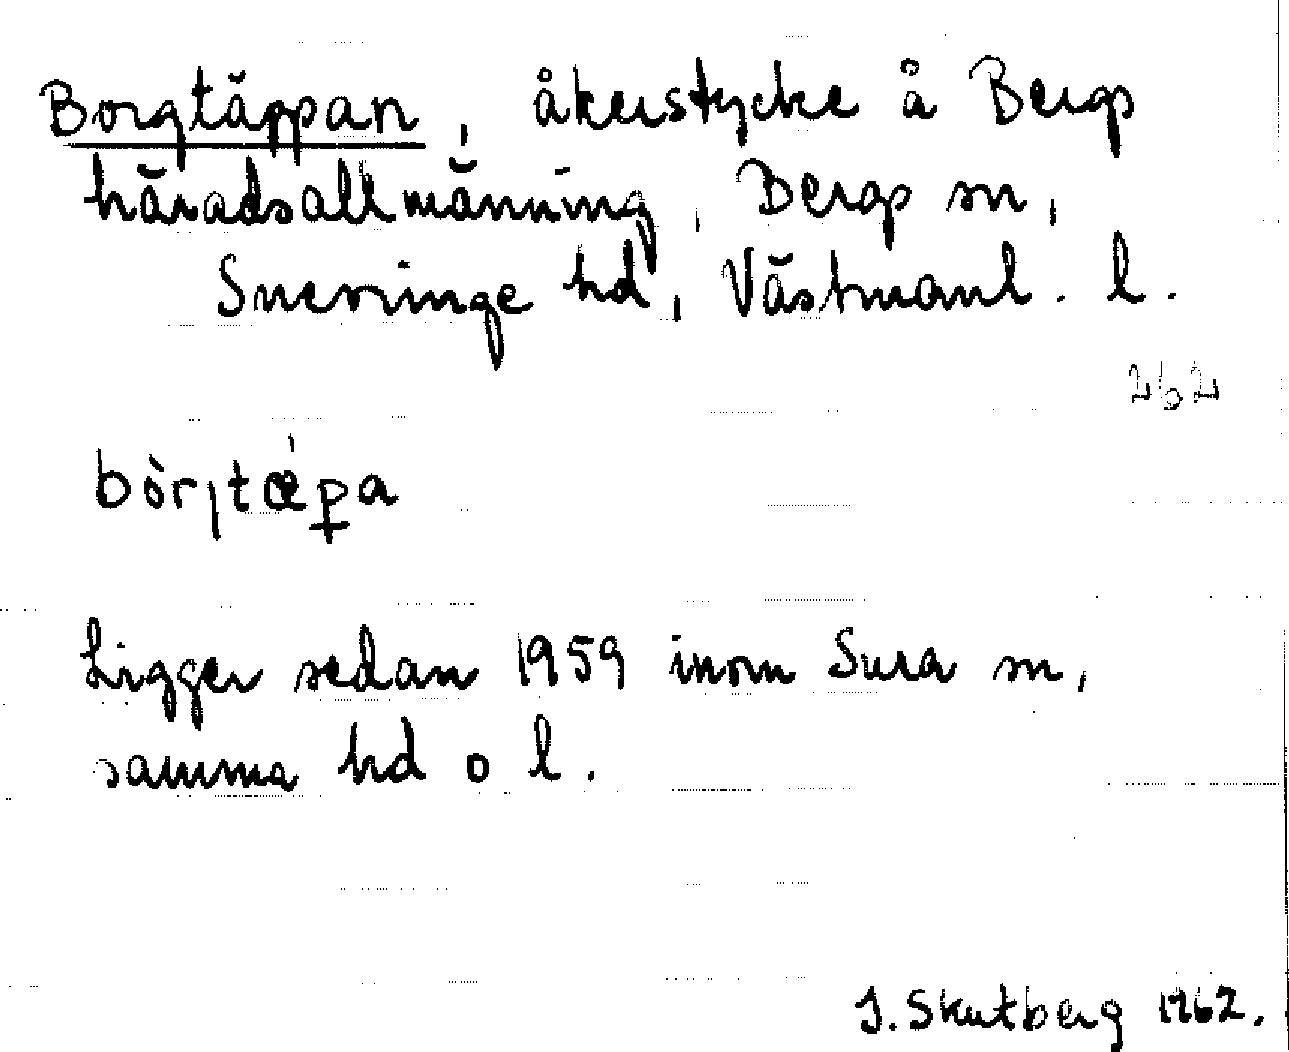 Borgtäppan, åkerstycke å Bergs
häradsallmänning, Bergs sn,
Snevringe hd, Västmanl. l.
262
bòrjtæ̀pa
Ligger sedan 1959 inom Sura sn,
samma hd o l.
J. Skutberg 1962.